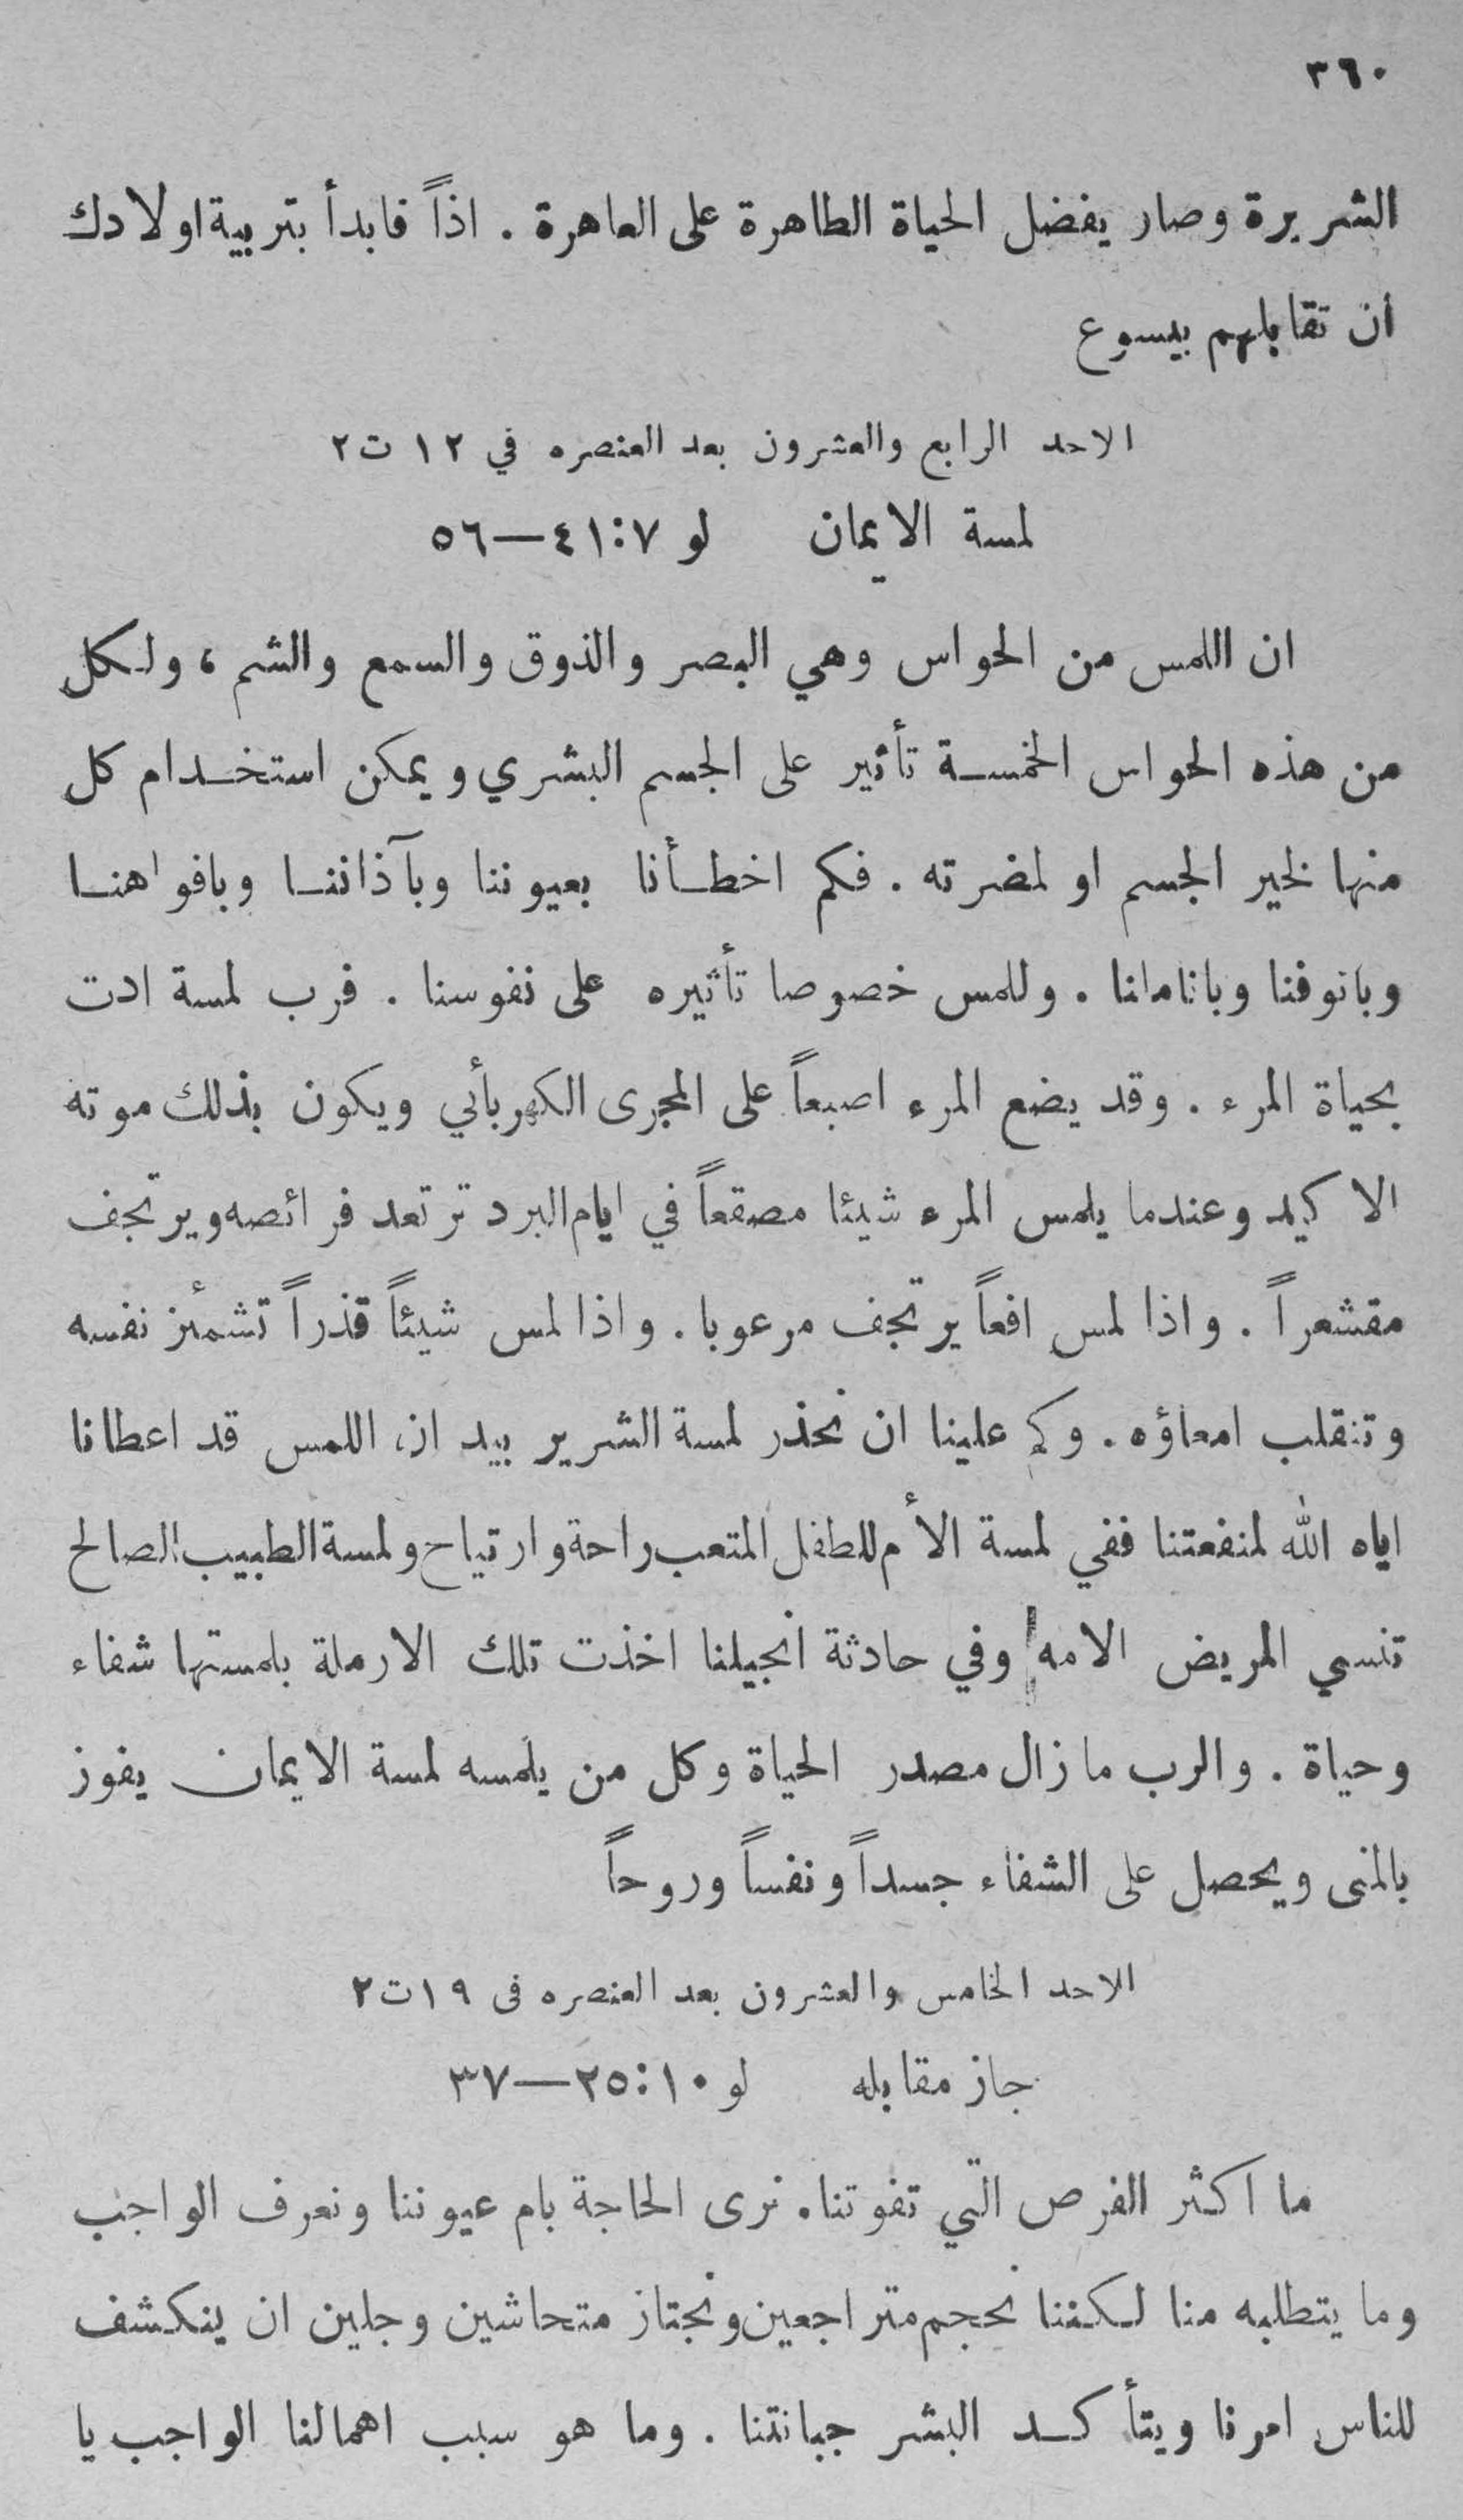 ٣٦٠
الشريرة وصار يفضل الحياة الطاهرة على العاهرة . اذاً فابدأ بتربية اولادك
أن تقابلهم بيسوع
الاحد الرابع والعشرون بعد العنصره في ١٢ ت٢
لمسة الايمان لو ٧:٤١—٥٦
ان اللمس من الحواس وهي البصر والذوق والسمع والشم ، ولكل
من هذه الحواس الخمسة تأثير على الجسم البشري ويمكن استخدام كل
منها لخير الجسم او لمضرته . فكم اخطأنا بعيوننا وبآذاننا وبافواهنا
وبانوفنا وباناملنا . وللمس خصوصا تأثيره على نفوسنا . فرب لمسة ادت
بحياة المرء . وقد يضع المرء اصبعاً على المجرى الكهربأئي ويكون بذلك موته
الاكيد وعندما يلمس المرء شيئا مصقعاً في ايام البرد ترتعد فرائصه ويرتجف
مقشعراً . واذا لمس افعاً يرتجف مرعوبا . واذا لمس شيئاً قذراً تشمئز نفسه
وتنقلب امعاؤه . وكم علينا ان نحذر لمسة الشرير بيد ان اللمس قد اعطانا
اياه الله لمنفعتنا ففي لمسة الأم للطفل المتعب راحة وارتياح ولمسة الطبيب الصالح
تنسي المريض الامه وفي حادثة انجيلنا اخذت تلك الارملة بلمستها شفاء
وحياة . والرب ما زال مصدر الحياة وكل من يلمسه لمسة الايمان يفوز
بالمنى ويحصل على الشفاء جسداً ونفساً وروحاً
الاحد الخامس والعشرون بعد العنصره فى ١٩ ت٢
جاز مقابله لو ١٠:٢٥—٣٧
ما اكثر الفرص التي تفوتنا . نرى الحاجة بام عيوننا ونعرف الواجب
وما يتطلبه منا لكننا نحجم متراجعين ونجتاز متحاشين وجلين ان ينكشف
للناس امرنا ويتأكد البشر جبانتنا . وما هو سبب اهمالنا الواجب يا